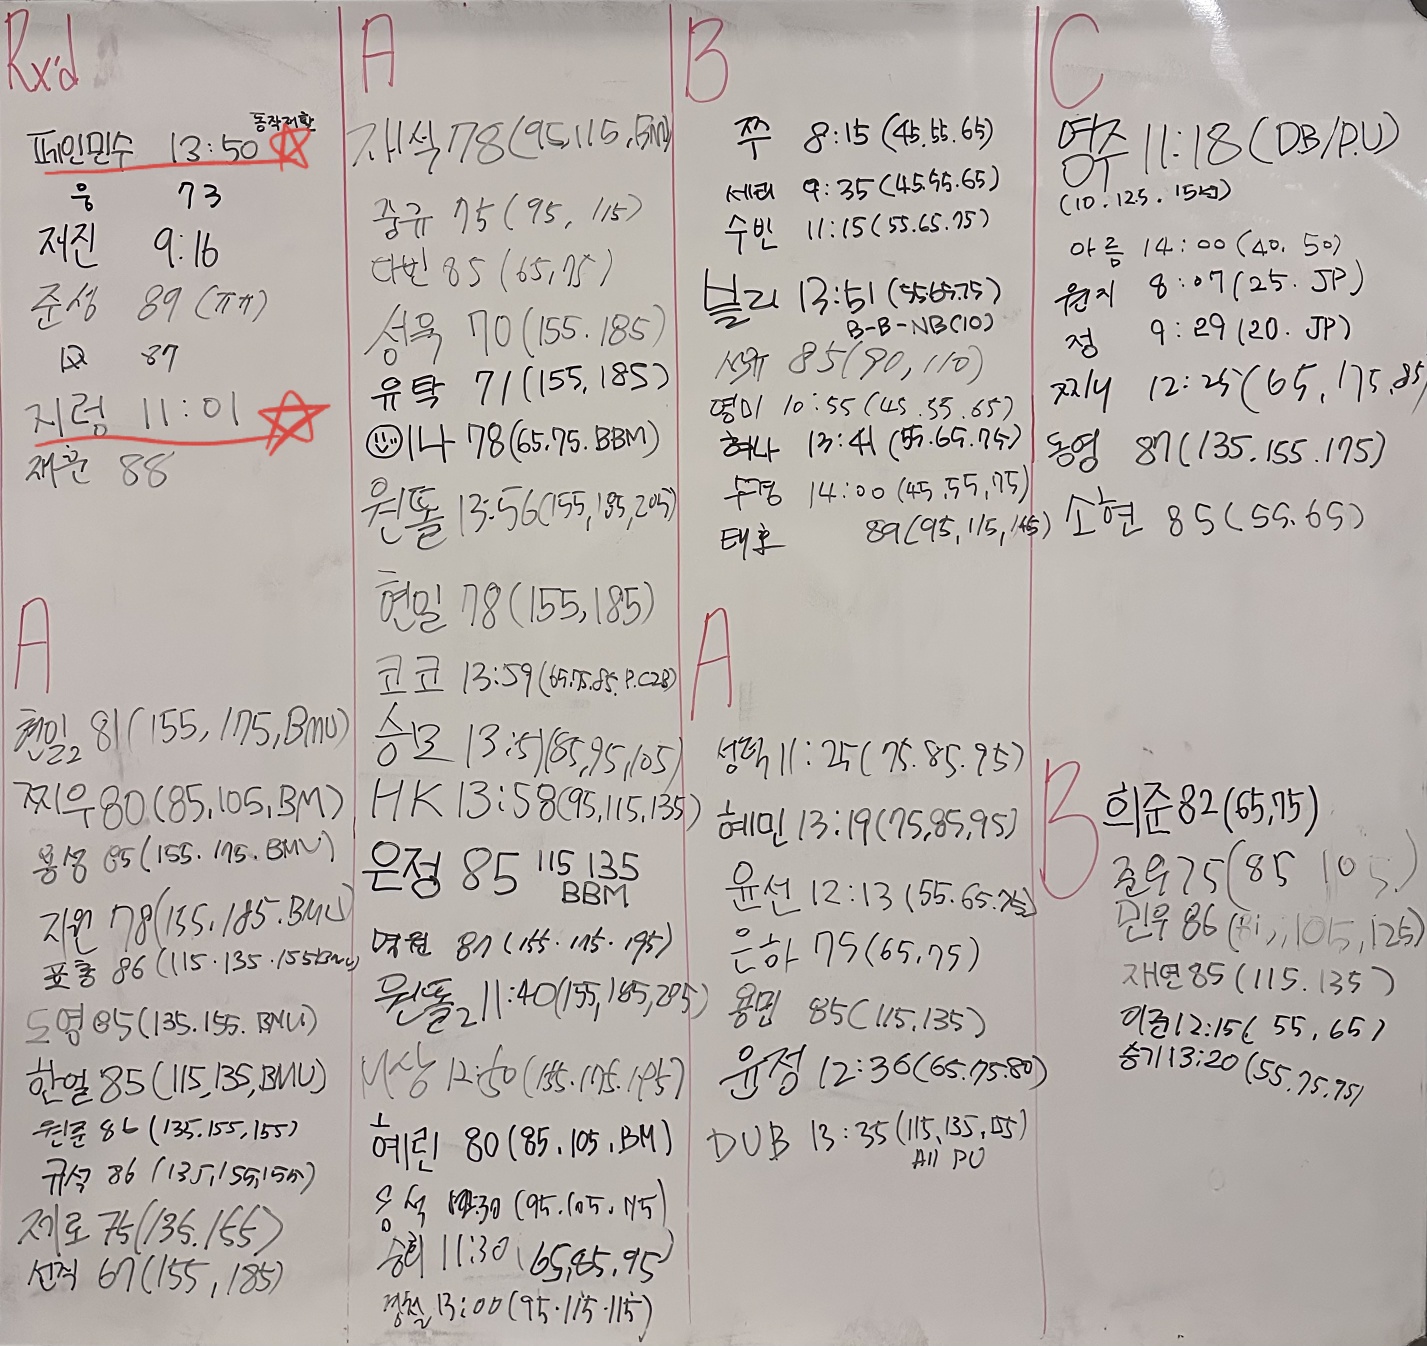 Rx'd
동작전환
페인민수 13:50
웅 73
재진 9:16
준성 89 (ㅠㅠ)
IQ 87
지렁 11:01
재훈 88
A
현일2 81 (155, 175, BMU)
찌우 80 (85, 105, BM)
용성 85 (155. 175. BMU)
지원 78 (155. 185. BMU)
표총 86 (115. 135. 155 BMU)
도영 85 (135. 155. BMU)
한얼 85 (115, 135, BMU)
원준 86 (135. 155, 155)
규석 86 (135, 155, 155)
제로 75 (135. 155)
선적 67 (155, 185)
A
재석 78 (95, 115, BM)
중규 75 (95, 115)
다빈 85 (65, 75)
성욱 70 (155. 185)
유탁 71 (155, 185)
이나 78 (65. 75. BBM)
원똘 13:56 (155, 185, 205)
현일 78 (155, 185)
코코 13:59 (65. 75. 85. P.C2B)
승모 13:51 (85, 95, 105)
HK 13:58 (95, 115, 135)
은정 85 115 135
BBM
87 (155. 175. 195)
원똘2 11:40 (155, 185, 205)
12:50 (155. 175. 195)
혜린 80 (85. 105. BM)
용석 (95. 105. 115)
승희 11:30 (65, 85, 95)
경철 13:00 (95. 115. 115)
B
쭈 8:15 (45. 55. 65)
세태 9:35 (45. 55. 65)
수빈 11:15 (55. 65. 75)
블리 13:51 (55 65 75)
B-B-NB (10)
85 (90, 110)
영미 10:55 (45. 55. 65)
혀나 13:41 (55. 65. 75)
수경 14:00 (45, 55, 75)
태호 89 (95, 115, 145)
A
성덕 11:25 (75. 85. 95)
혜민 13:19 (75, 85, 95)
윤선 12:13 (55. 65. 75)
은하 75 (65, 75)
용민 85 (115, 135)
윤정 12:36 (65. 75. 80)
DUB 13:35 (115, 135, 155)
All PU
C
명주 11:18 (DB/P.U)
(10. 12.5. 15kg)
아름 14:00 (40. 50)
원지 8:07 (25. JP)
정 9:29 (20. JP)
찌니 12:25 (65, 75, 85)
동영 87 (135. 155. 175)
소현 85 (55. 65)
B
희준 82 (65, 75)
준우 75 (85 105)
민우 86 (85, 105, 125)
재연 85 (115. 135)
이준 12:15 (55, 65)
승기 13:20 (55. 75. 75)